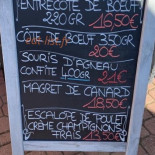 ENTRECÔTE DE BŒUF
280GR 16,50€
CÔTE DE BŒUF 350GR
20€
SOURIS D'AGNEAU
CONFITE 400GR 21€
MAGRET DE CANARD
18,50€
ESCALOPE DE POULET
CRÈME CHAMPIGNONS
FRAIS 13,50€